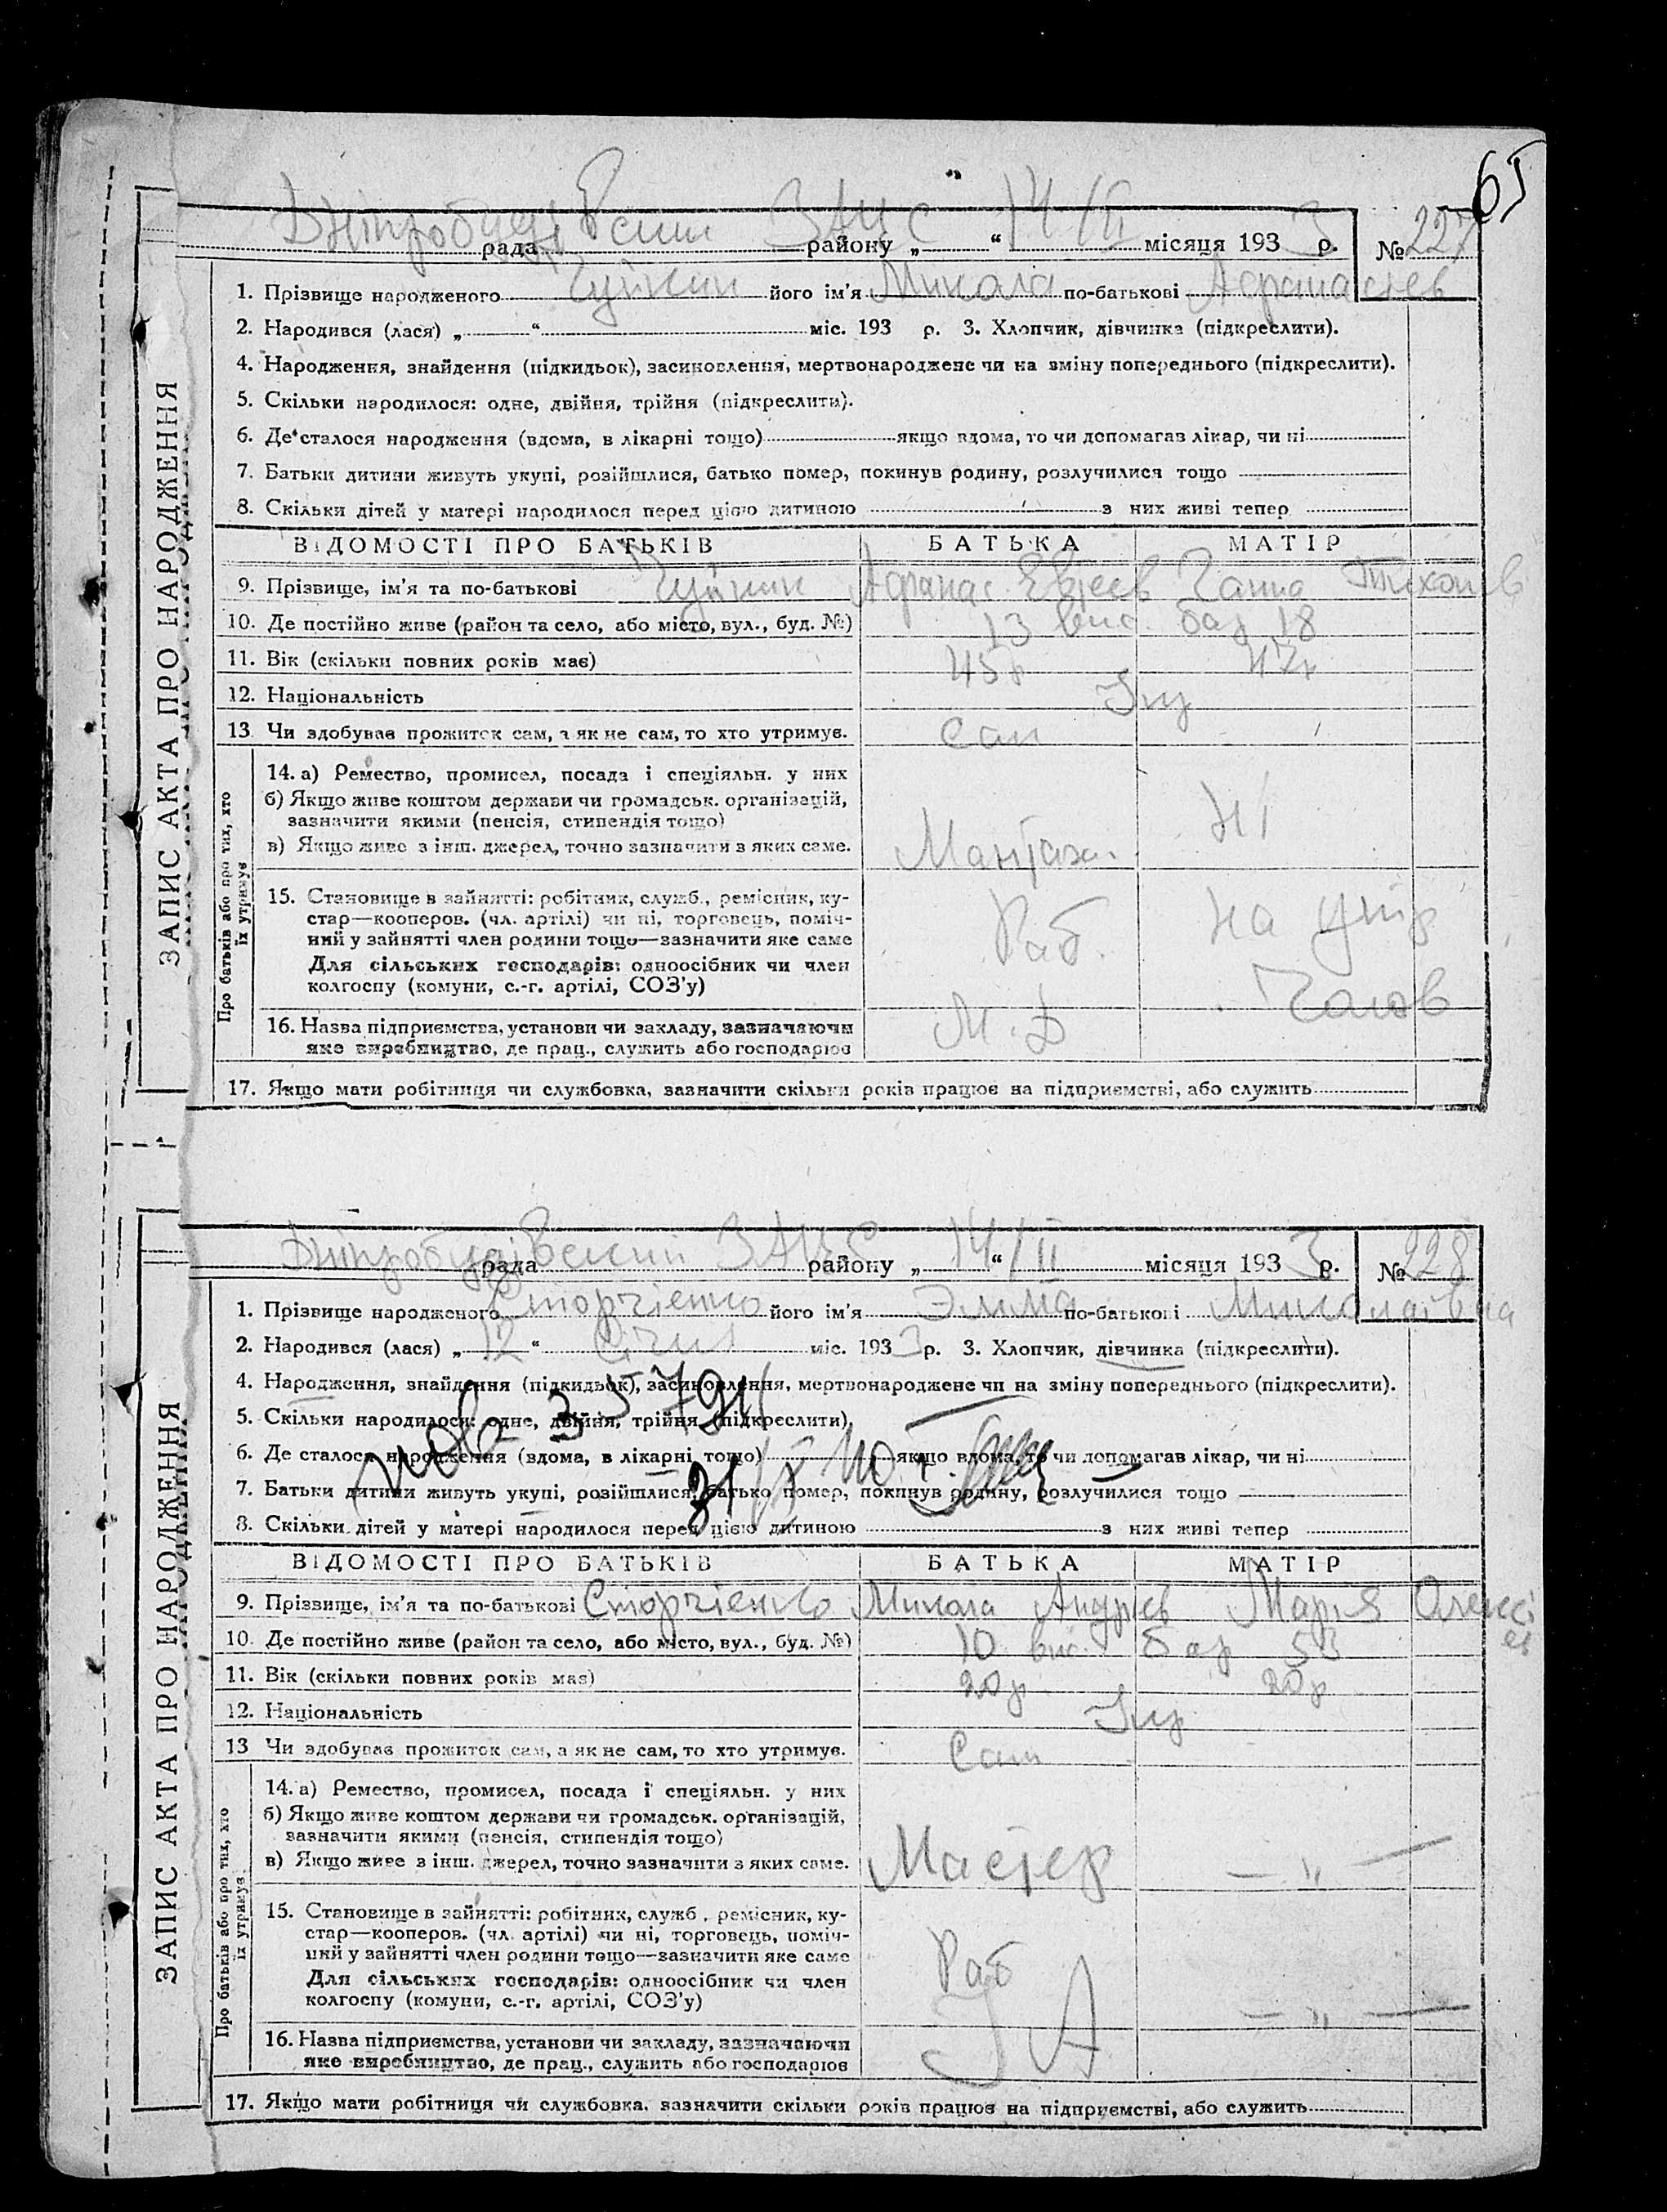 65
Дніпробудівський ЗАЦС рада району „ “ 14/II місяця 1933 р. № 227
1. Прізвище народженого його ім'я Микола по-батькові Афанасіев
2. Народився (лася) „ “ міс. 193 р. 3. Хлопчик, дівчинка (підкреслити).
4. Народження, знайдення (підкидьок), засиновлення, мертвонароджене чи на зміну попереднього (підкреслити).
5. Скільки народилося: одне, двійня, трійня (підкреслити).
6. Де сталося народження (вдома, в лікарні тощо) якщо вдома, то чи допомагав лікар, чи ні
7. Батьки дитини живуть укупі, розійшлися, батько помер, покинув родину, розлучилися тощо
8. Скільки дітей у матері народилося перед цією дитиною з них живі тепер
ВІДОМОСТІ ПРО БАТЬКІВ БАТЬКА МАТІР
9. Прізвище, ім'я та по-батькові Афанас. Ганна Тихонів
10. Де постійно живе (район та село, або місто, вул., буд. №) 13 вис. бар 18
11. Вік (скільки повних років має) 45 р 42 р
12. Національність
13 Чи здобував прожиток сам, а як не сам, то хто утримує. Сам
14. а) Ремество, промисел, посада і спеціяльн. у них
б) Якщо живе коштом держави чи громадськ. організацій,
зазначити якими (пенсія, стипендія тощо) Ні
в) Якщо живе з інш. джерел, точно зазначити з яких саме. Монтаж.
15. Становище в зайнятті: робітник, служб., ремісник, ку-
стар—кооперов. (чл. артілі) чи ні, торговець, поміч- Раб. на утр
ний у зайнятті член родини тощо—зазначити яке саме
Для сільських господарів: одноосібник чи член
колгоспу (комуни, с.-г. артілі, СОЗ'у) Чолов
16. Назва підприємства, установи чи закладу, зазначаючи М. Д
яке виробництво, де прац., служить або господарює
17. Якщо мати робітниця чи службовка, зазначити скільки років працює на підприємстві, або служить
ЗАПИС АКТА ПРО НАРОДЖЕННЯ
Про батьків або про тих, хто
їх утримує
Дніпробудівський ЗАЦС рада району „ “ 14/II місяця 1933 р. № 228
1. Прізвище народженого Сторчієнко його ім'я Элма по-батькові Миколаївна
2. Народився (лася) „12“ Січня міс. 1933 р. 3. Хлопчик, дівчинка (підкреслити).
4. Народження, знайдення (підкидьок), засиновлення, мертвонароджене чи на зміну попереднього (підкреслити).
5. Скільки народилося: одне, двійня, трійня (підкреслити).
6. Де сталося народження (вдома, в лікарні тощо) якщо вдома, то чи допомагав лікар, чи ні
7. Батьки дитини живуть укупі, розійшлися, батько помер, покинув родину, розлучилися тощо
8. Скільки дітей у матері народилося перед цією дитиною з них живі тепер
ВІДОМОСТІ ПРО БАТЬКІВ БАТЬКА МАТІР
9. Прізвище, ім'я та по-батькові Сторчієнко Микола Андрієв Марія Олексієв
10. Де постійно живе (район та село, або місто, вул., буд. №) 10 вис. бар 53
11. Вік (скільки повних років має) 20р 20р
12. Національність
13 Чи здобував прожиток сам, а як не сам, то хто утримує. Сам
14. а) Ремество, промисел, посада і спеціяльн. у них
б) Якщо живе коштом держави чи громадськ. організацій,
зазначити якими (пенсія, стипендія тощо)
в) Якщо живе з інш. джерел, точно зазначити з яких саме. Мастер — „ —
15. Становище в зайнятті: робітник, служб., ремісник, ку-
стар—кооперов. (чл. артілі) чи ні, торговець, поміч-
ний у зайнятті член родини тощо—зазначити яке саме Раб
Для сільських господарів: одноосібник чи член
колгоспу (комуни, с.-г. артілі, СОЗ'у) — „ —
16. Назва підприємства, установи чи закладу, зазначаючи
яке виробництво, де прац., служить або господарює
17. Якщо мати робітниця чи службовка, зазначити скільки років працює на підприємстві, або служить
ЗАПИС АКТА ПРО НАРОДЖЕННЯ
Про батьків або про тих, хто
їх утримує